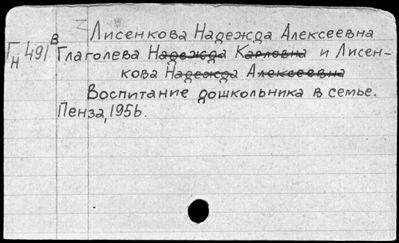 Лисенкова Надежда Алексеевна
Гн 491 в
Глаголева Надежда Карловна и Лисен-
кова Надежда Алексеевна
Воспитание дошкольника в семье.
Пенза, 1956.